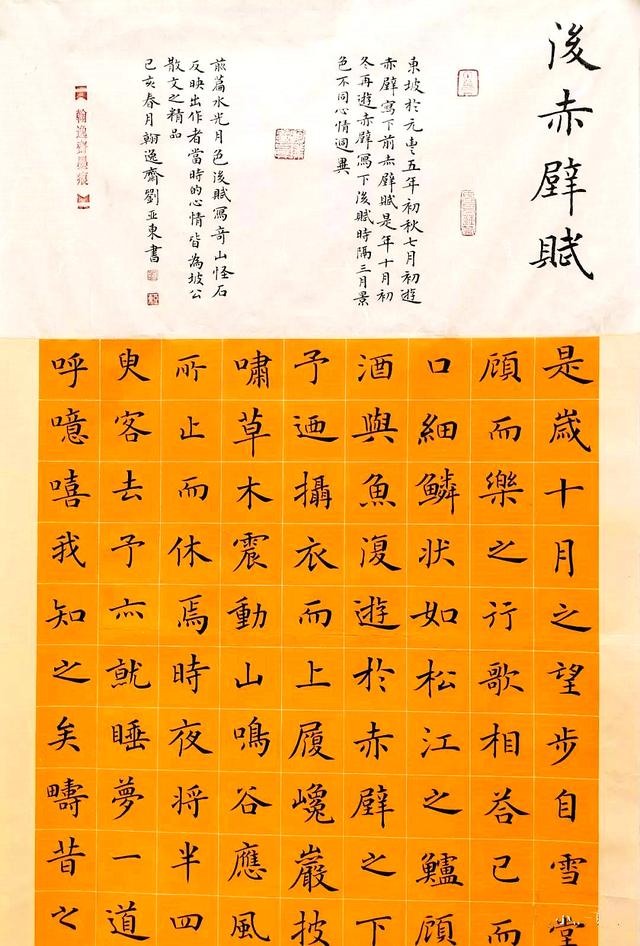 後赤壁賦
東坡於元豊五年初秋七月初遊
赤壁寫下前赤壁賦是年十月初
冬再遊赤壁寫下後賦時隔三月景
色不同心情迥異
前篇水光月色後賦寫奇山怪石
反映出作者當時的心情皆為坡公
散文之精品
己亥春月翰逸齋劉亞東書
【翰逸齋墨痕】
是歲十月之望步自雪堂
顧而樂之行歌相荅已而
口細鱗狀如松江之鱸顧
酒與魚復遊於赤壁之下
予迺攝衣而上履巉巖披
嘯草木震動山鳴谷應風
所止而休焉時夜将半四
臾客去予亦就睡夢一道
呼噫嘻我知之矣疇昔之